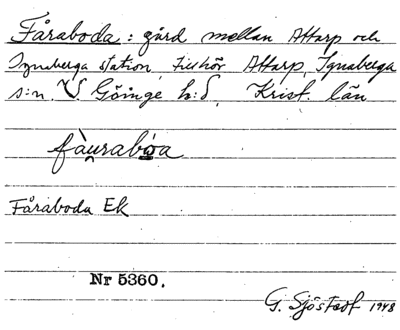 Fåraboda: gård mellan Attarp och
Ignaberga station, tillhör Attarp, Ignaberga
s:n. V. Göinge h:d, Krist. län
fàu̯rabọa
Fåraboda Ek
Nr 5360.
G. Sjöstedt 1948